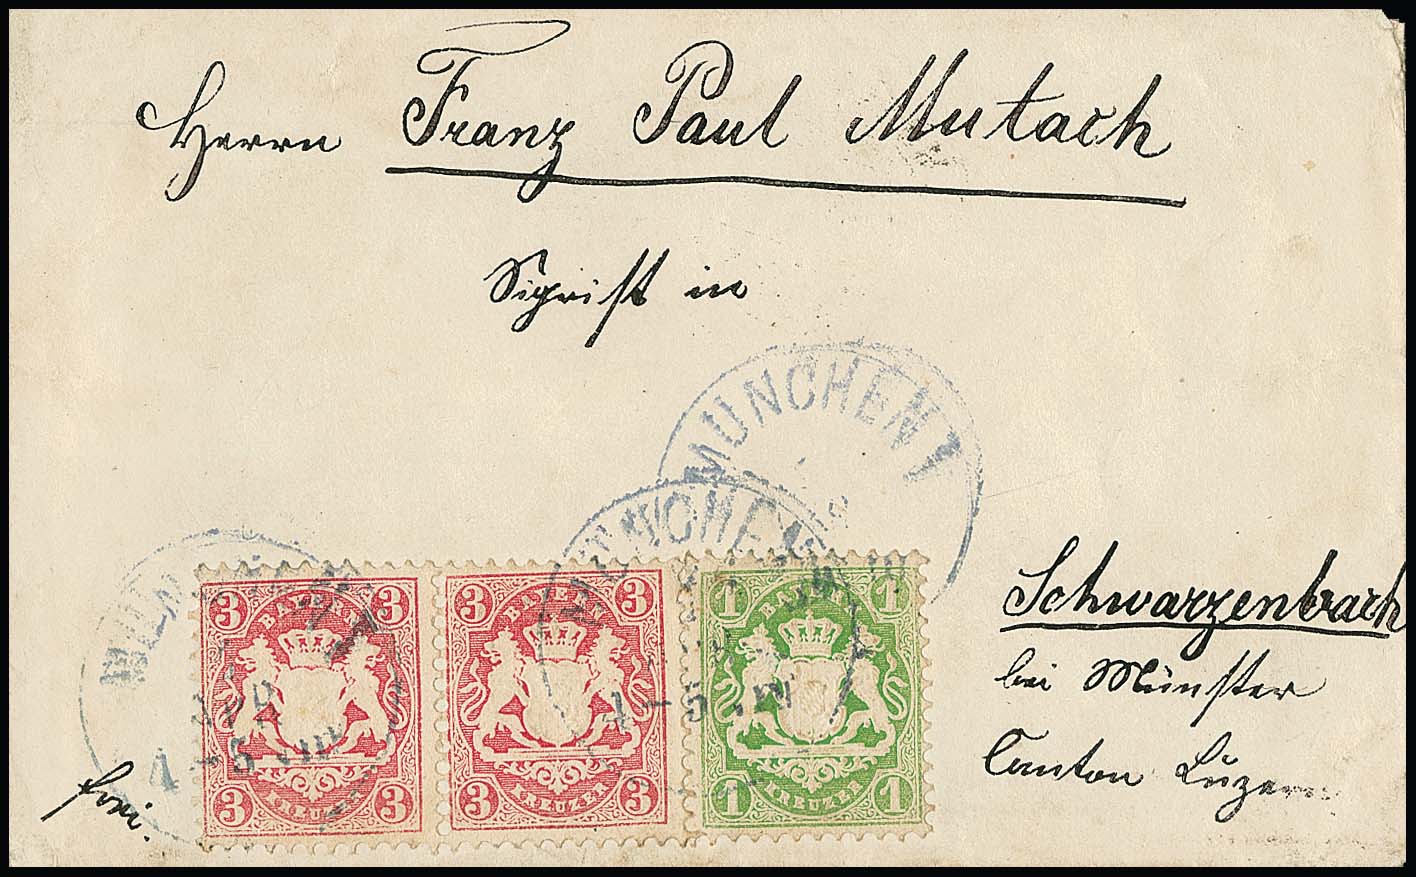 Herrn Franz Paul Mutach
Sigrist in
MÜNCHEN 1
MÜNCHEN
3 BAYERN 3
3 BAYERN 3
1 BAYERN 1
4-5 NM
4-5 NM
3 KREUZER 3
3 KREUZER 3
1 KREUZER 1
frei.
Schwarzenbach
bei Münster
Canton Luzern